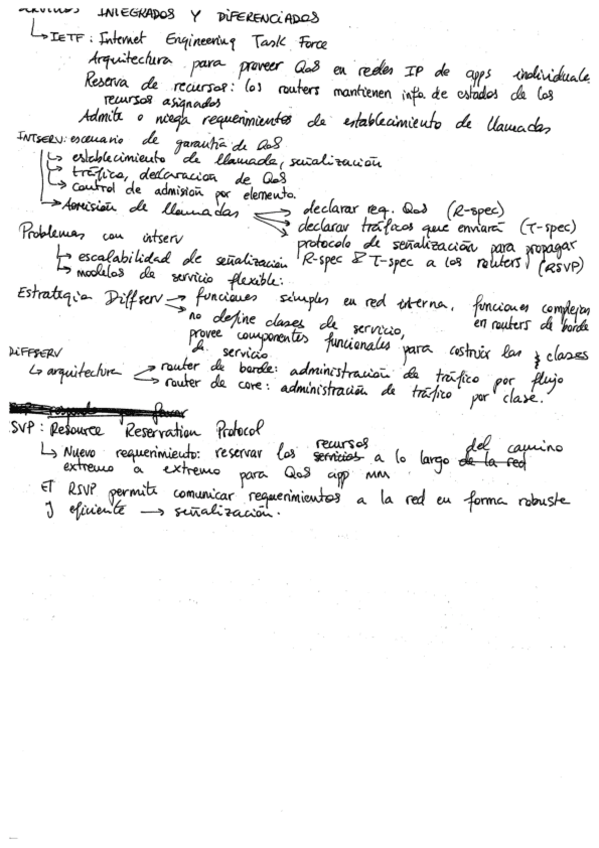 SERVICIOS INTEGRADOS Y DIFERENCIADOS
↳ IETF: Internet Engineering Task Force
Arquitectura para proveer QoS en redes IP de apps individuale
Reserva de recursos: los routers mantienen info. de estados de los
recursos asignados
Admite o niega requerimientos de establecimiento de llamadas
INTSERV: escenario de garantía de QoS
↳ establecimiento de llamada, señalización
↳ tráfico, declaración de QoS
↳ control de admisión por elemento.
↳ Admisión de llamadas → declarar req. QoS (R-spec)
→ declarar tráficos que enviará (T-spec)
→ protocolo de señalización para propagar
R-spec & T-spec a los routers (RSVP)
Problemas con intserv
↳ escalabilidad de señalización
↳ modelos de servicio flexible:
Estrategia Diffserv → funciones simples en red interna, funciones complejas
en routers de borde
→ no define clases de servicio,
provee componentes funcionales para costruir las clases
de servicio
DIFFSERV
↳ arquitectura → router de borde: administración de tráfico por flujo
→ router de core: administración de tráfico por clase.
SVP: Resource Reservation Protocol
↳ Nuevo requerimiento: reservar los recursos servicios a lo largo del camino de la red
extremo a extremo para QoS app mm
El RSVP permite comunicar requerimientos a la red en forma robuste
y eficiente → señalización.